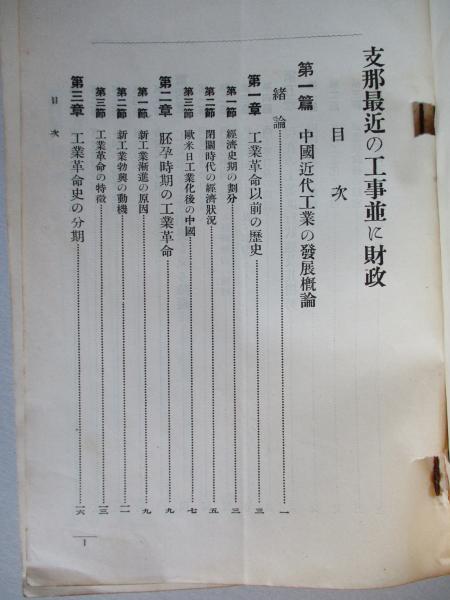 支那最近の工事並に財政
目次
第一篇 中國近代工業の發展槪論
緖論……一
第一章 工業革命以前の歷史……三
第一節 經濟史期の劃分……三
第二節 閉關時代の經濟狀況……五
第三節 歐米日工業化後の中國……七
第二章 胚孕時期の工業革命……九
第一節 新工業漸進の原因……九
第二節 新工業勃興の動機……一一
第三節 工業革命の特徵……一三
第三章 工業革命史の分期……一六
目次
1